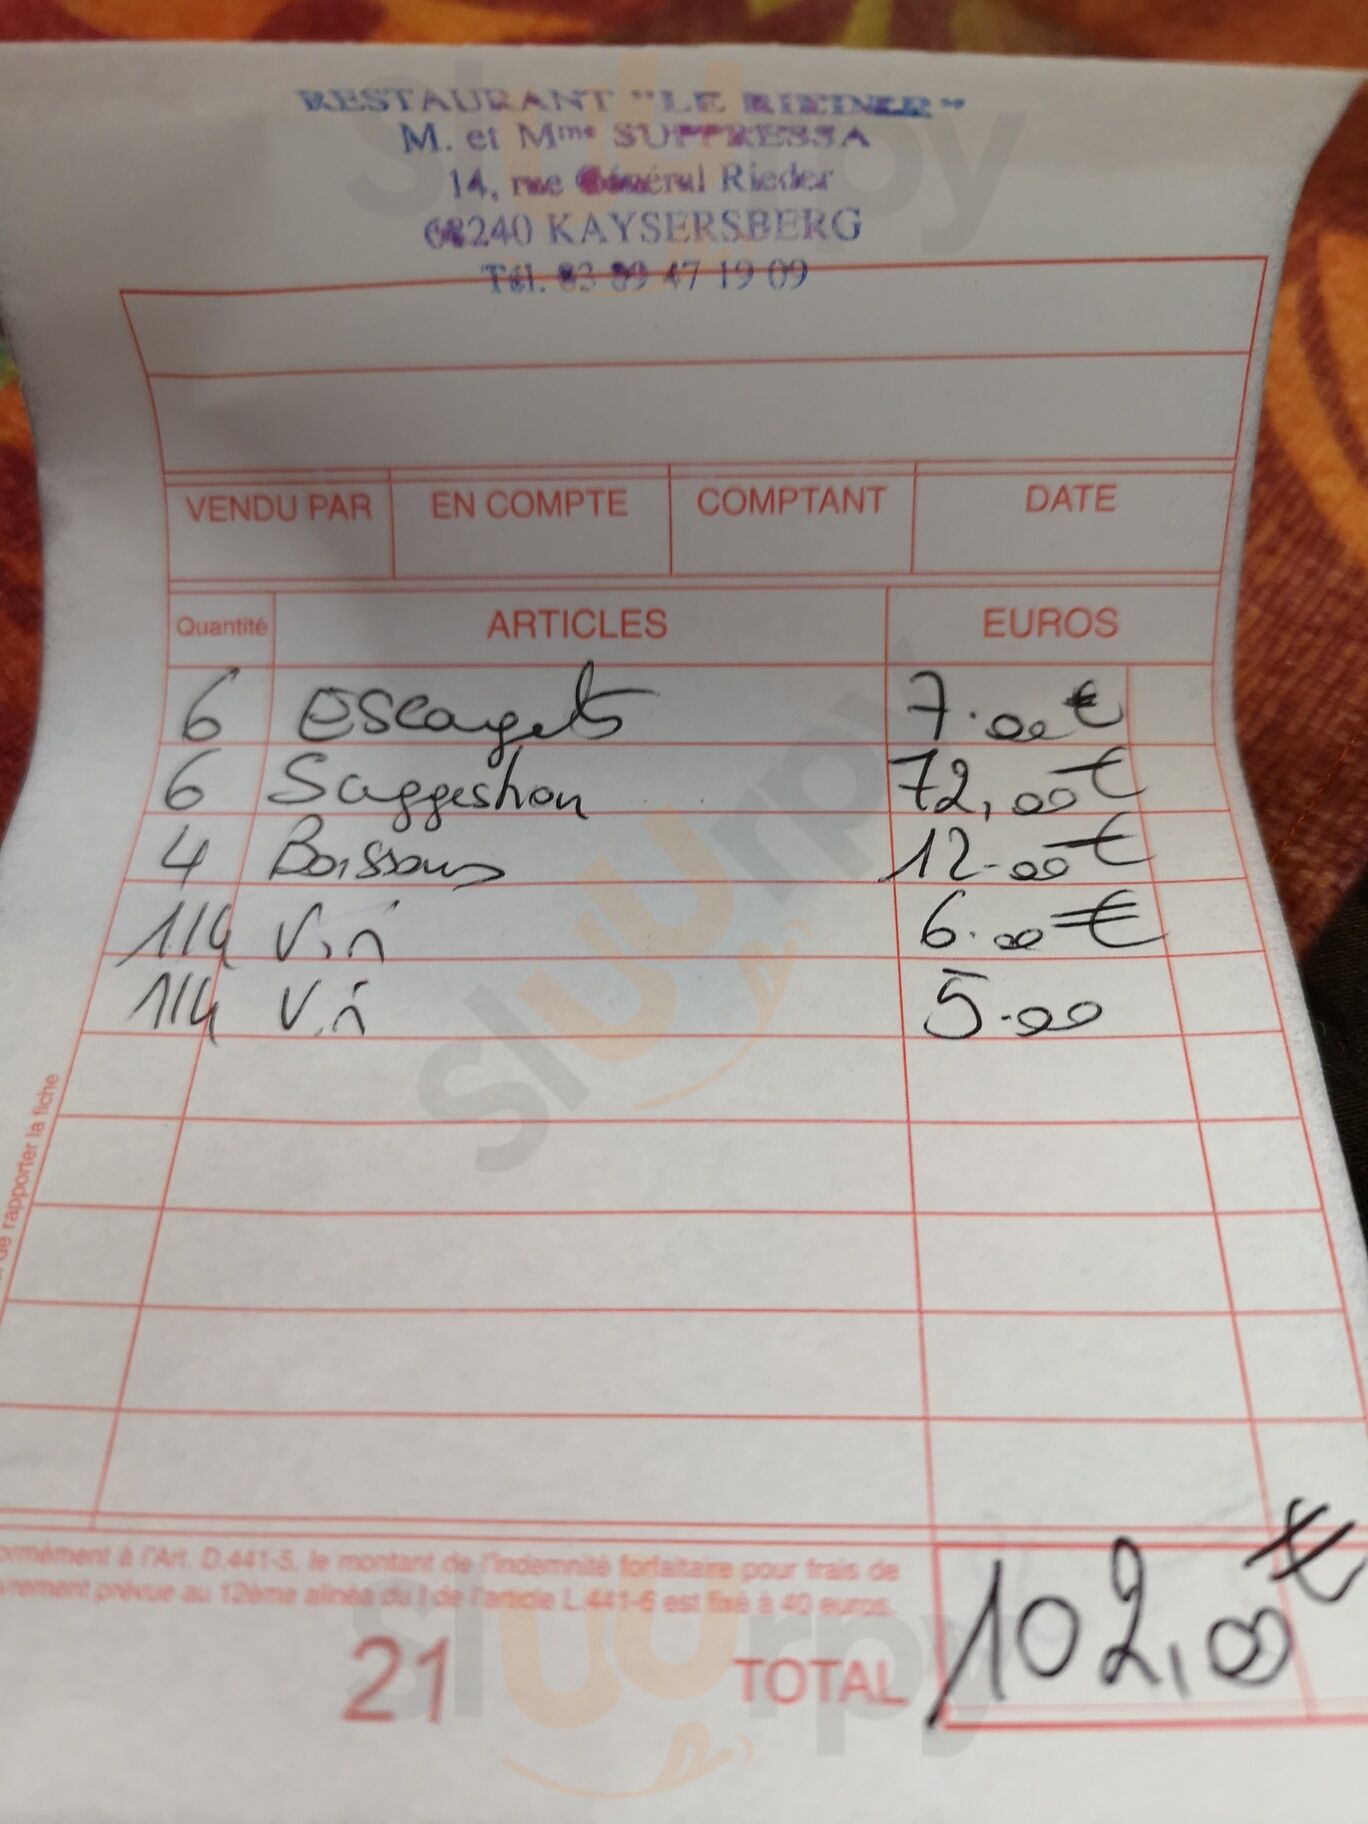 RESTAURANT "LE RIEDER"
M. et Mme SUPPRESSA
14, rue Général Rieder
68240 KAYSERSBERG
Tél. 03 89 47 19 09
VENDU PAR EN COMPTE COMPTANT DATE
Quantité ARTICLES EUROS
6 escargots 7.00€
6 Suggestion 72,00€
4 Boissons 12.00€
1/4 Vin 6.00€
1/4 Vin 5.00
de rapporter la fiche
à l'Art. D.441-5, le montant de l'indemnité forfaitaire pour frais de
prévue au 12ème alinéa du I de l'article L.441-6 est fixé à 40 euros.
21 TOTAL 102,00€
sluurpy
sluurpy
sluurpy